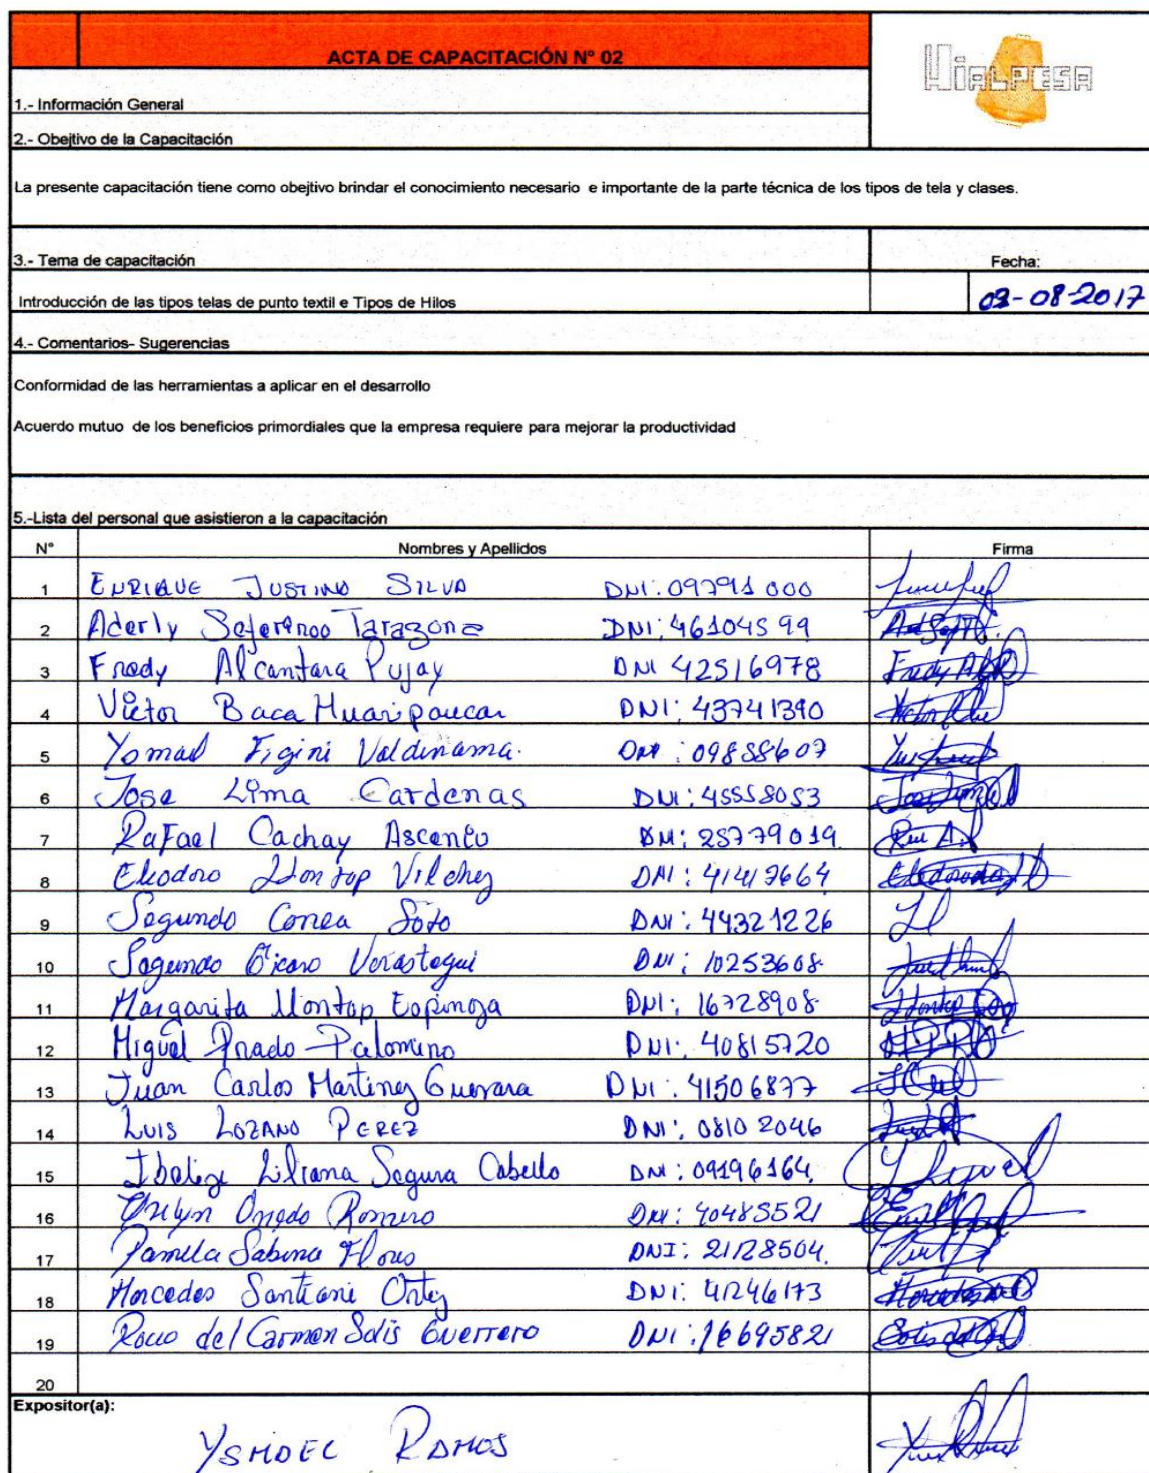 ACTA DE CAPACITACIÓN N° 02
HIALPESA
1.- Información General
2.- Obejtivo de la Capacitación
La presente capacitación tiene como obejtivo brindar el conocimiento necesario e importante de la parte técnica de los tipos de tela y clases.
3.- Tema de capacitación Fecha:
Introducción de las tipos telas de punto textil e Tipos de Hilos 02-08-2017
4.- Comentarios- Sugerencias
Conformidad de las herramientas a aplicar en el desarrollo
Acuerdo mutuo de los beneficios primordiales que la empresa requiere para mejorar la productividad
5.-Lista del personal que asistieron a la capacitación
N° Nombres y Apellidos Firma
1 ENRIQUE JUSTINO SILVA DNI: 09791000
2 Aderly Seferinoo Tarazona DNI: 46104599
3 Fredy Alcantara Pujay DNI 42516978
4 Victor Baca Huaripaucar DNI: 43741390
5 Figini Valdinama. DNI: 09858607
6 Jose Lima Cardenas DNI: 45558053
7 RaFael Cachay Ascencio DNI: 25779019
8 Eleodoro Llontop Vilchez DNI:
9 Segundo Correa Soto DNI: 44321226
10 Segundo Verastegui DNI: 10253608
11 Margarita Llontop Espinoza DNI: 16728908
12 Miguel Prado Palomino DNI: 40815720
13 Juan Carlos Martinez Guevara DNI: 41506877
14 LUIS LOZANO PEREZ DNI: 08102046
15 Liliana Segura Cabello DNI: 09196164
16 Romero DNI: 40485521
17 Pamela Sabina Flores DNI: 21128504
18 Mercedes Santiani Ortiz DNI: 41246173
19 Rocio del Carmen Solis Guerrero DNI: 16695821
20
Expositor(a):
YSMAEL RAMOS